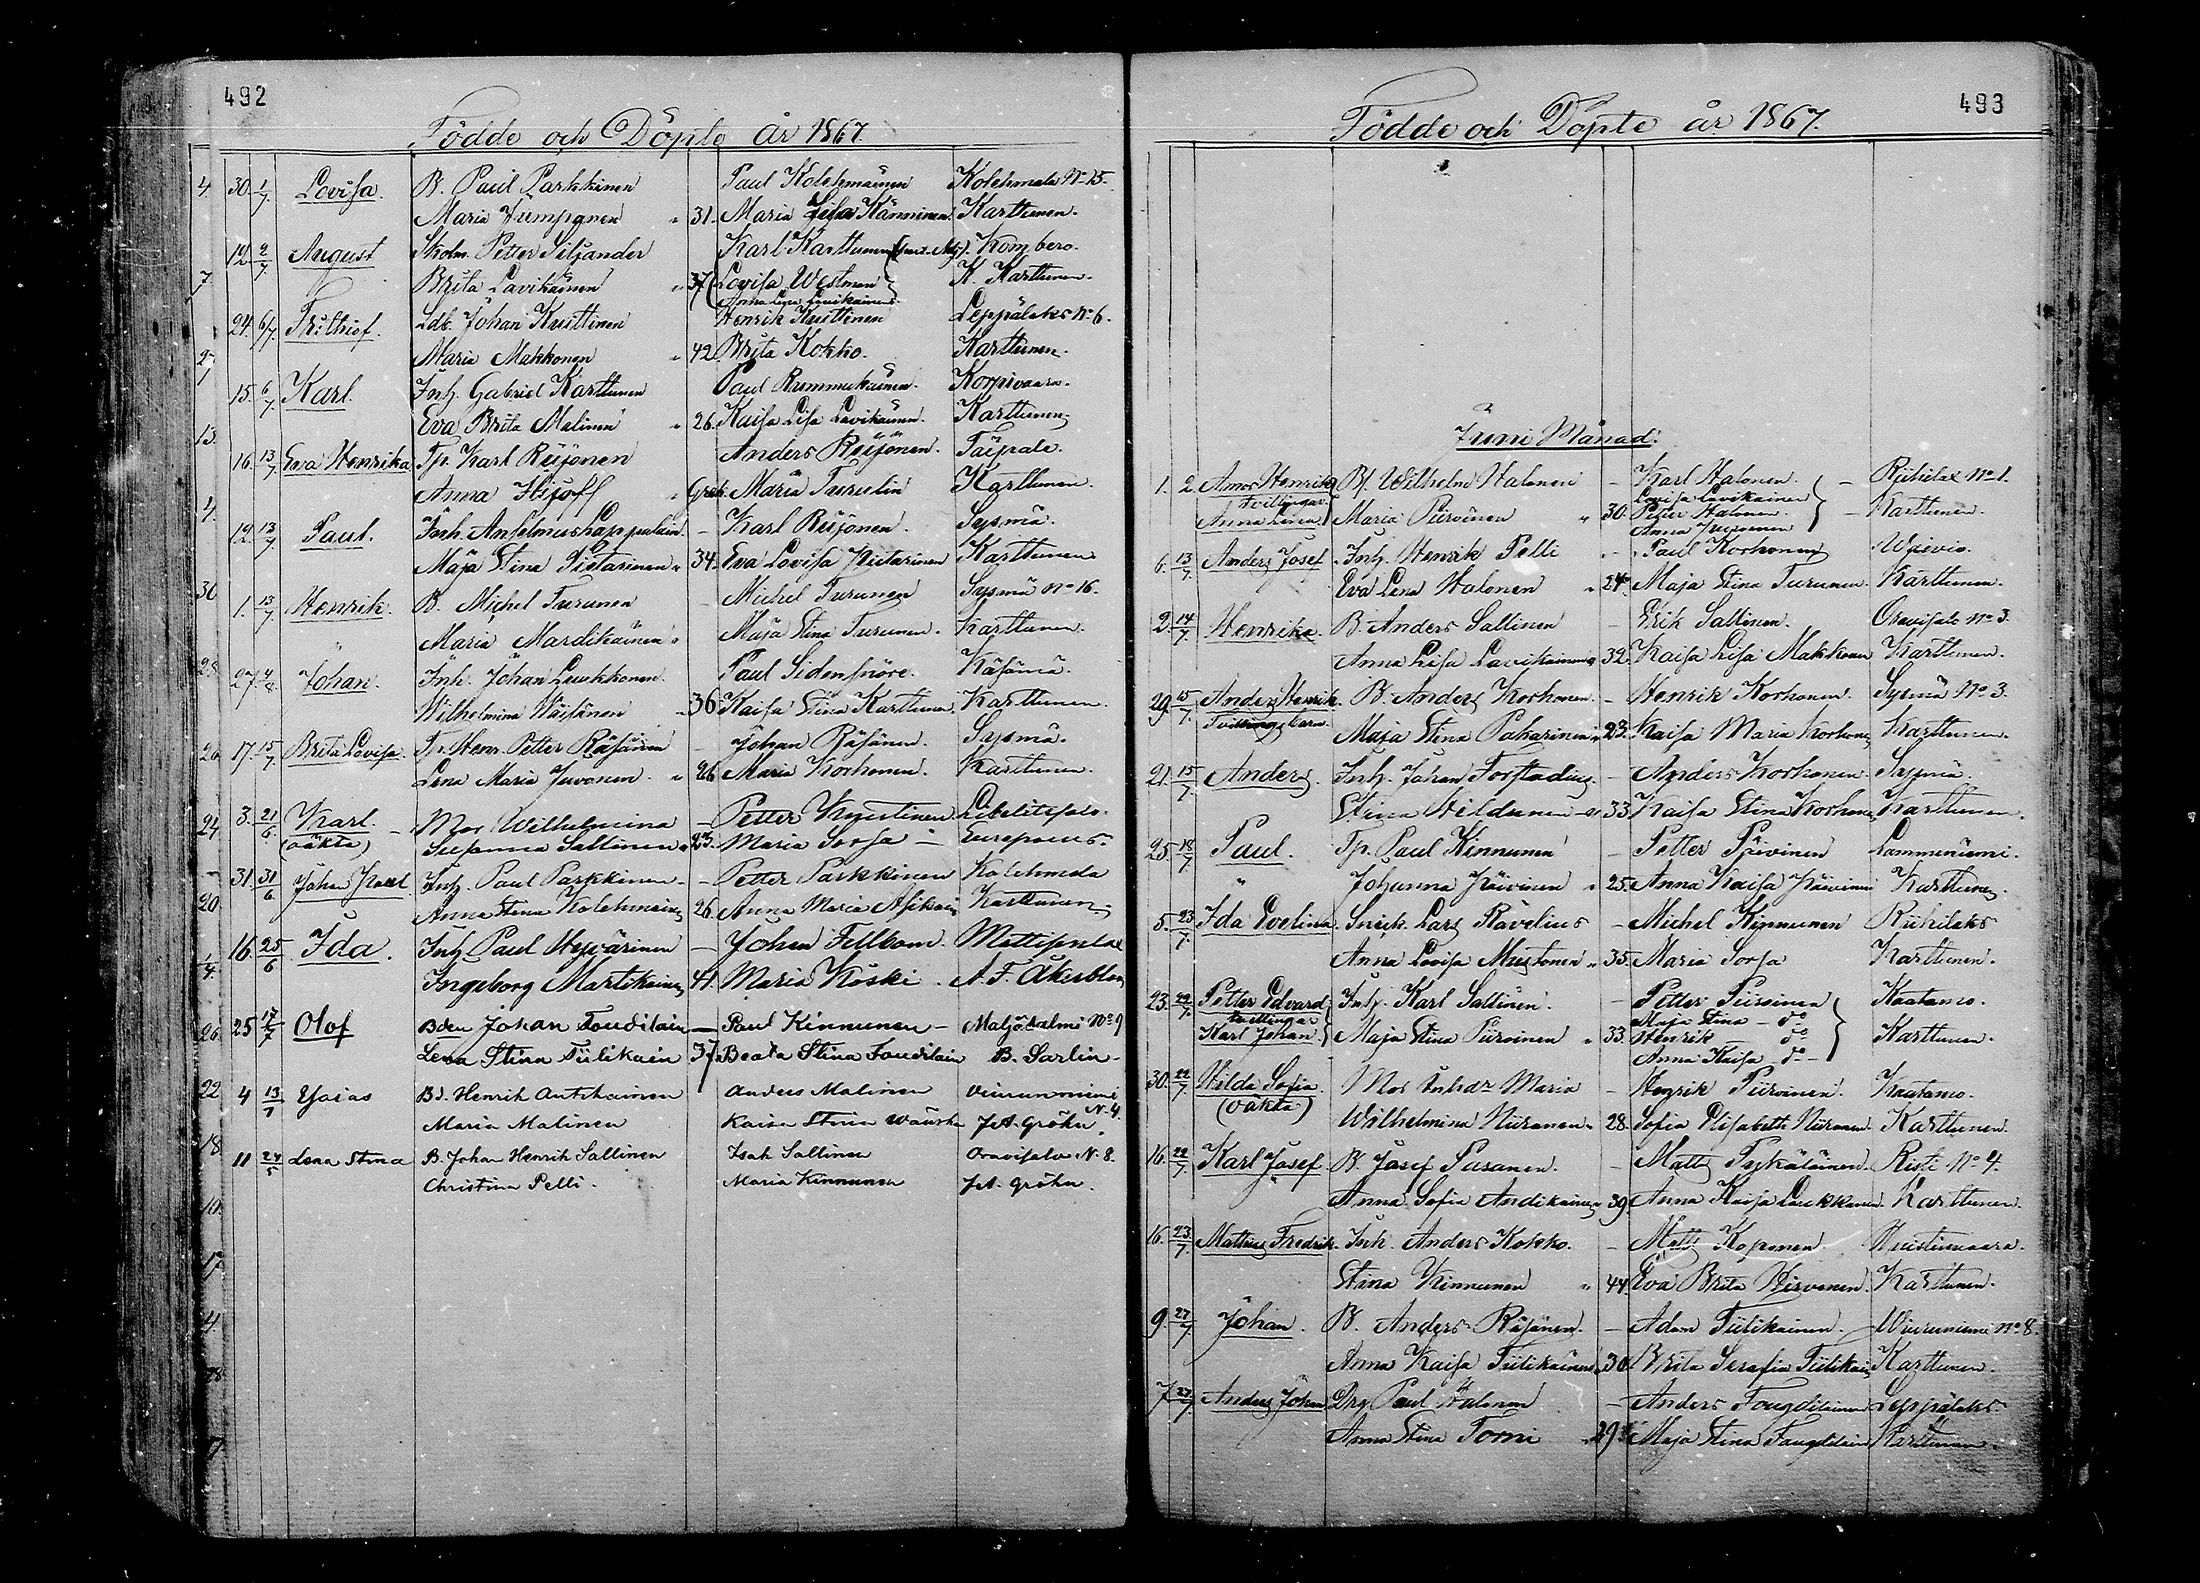 492
Födde och Döpte år 1867.
30. 1/7 Lovisa. B. Paul Parkkinen – Paul Kolehmainen Kolehmala No 15.
Maria Jumpganen " 31. Maria Lisa Känninen Karttunen.
12. 2/7 August Skolm. Petter Siljander Karl Karttunen Kombero.
Brita Lavikainen " 37 Lovisa Westman K. Karttunen.
Anna Lisa Lavikainen
24. 6/7 Frithiof. Ldb. Johan Kuittinen Henrik Kuittinen Leppälaks No 6.
Maria Makkonen " 42 Brita Kokko. Karttunen.
15. 6/7 Karl. Inh. Gabriel Karttunen Paul Rummukainen. Korpivaara.
Eva Brita Malinen " 26. Kaisa Lisa Lavikainen. Karttunen
16. 13/7 Eva Henrika Tp. Karl Riijonen Anders Riijonen. Taipale.
Anna Maria Turulin Karttunen.
12. 13/7 Paul. Inh. Anselmus Lappalain – Karl Riijonen. Sysmä.
Maja Stina Pietarinen " 34. Eva Lovisa Pietarinen Karttunen
1. 13/7 Henrik. B. Michel Turunen – Michel Turunen Sysmä No 16.
Maria Mardikainen " Maja Stina Turunen. Karttunen.
27. 4/8 Johan. Inh. Johan Luukkonen. Paul Sidensnöre. Käsämä.
Wilhelmina Wäisänen " 36 Kaisa Stina Karttunen. Karttunen.
17. 15/7 Brita Lovisa. Tp. Hem. Petter Räsänen – Johan Räsänen. Sysmä.
Lena Maria Juvonen. " 26 Maria Korhonen. Karttunen.
3. 21/6 Karl – Mor Wilhelmina – Petter Kuittinen Libelitsfalo.
(oäkta) Susanna Sallinen " 23. Maria Sorsa – Europaeus.
31. 31/6 Johan Karl Inh. Paul Parkkinen – – Petter Parkkinen Kolehmala
Anna Stina Kolehmainen 26 Anna Maria Asikain Karttunen.
16. 25/6 Ida. Inh. Paul Hyvärinen – Johan Fellman. Mattisenlax
Ingeborg Martikainen 41. Maria Koski. A. F. Åkerblom
25 17/7 Olof Bden Johan Foudilain – Paul Kinnunen – Maljasalmi No 9
Lena Stina Tiilikain 37 Beata Stina Foudilain B. Sarlin
4 13/7 Esaias Bd. Henrik Antikainen Anders Malinen Viinuniemi N. 4
Maria Malinen Kaisa Stina Wäiska J. A. Gröhn.
11 24/5 Lena Stina B. Johan Henrik Sallinen Isak Sallinen Oravisalo N. 8.
Christina Pelli. Maria Kinnunen J. A. Gröhn.
493
Födde och Döpte år 1867.
Juni Månad.
1. 2 Amos Henrik B. Wilhelm Halonen – Karl Halonen. – Riihilax No 1.
Tvillingar Lovisa Lavikainen
Anna Lovisa Maria Piiroinen " 30. Petter Halonen – Karttunen.
Anna Juvonen
6. 13/7 Anders Josef. Inh. Henrik Pelli – Paul Korhonen
Eva Lena Halonen " 24. Maja Stina Turunen. Karttunen.
2. 14/7 Henrika. B. Anders Sallinen – Erik Sallinen. Oravisalo No 3.
Anna Lisa Lavikainen " 32. Kaisa Lisa Makkonen Karttunen.
29. 15/7 Anders Henrik. B. Anders Korhonen. – Henrik Korhonen. Sysmä No 3.
Tvillingsbarn. Maja Stina Paharinen " 23. Kaisa Maria Korhonen Karttunen.
21. 15/7 Anders. Inh. Johan Forstadius – Anders Korhonen. Sysmä.
Stina Hildunen " 33. Kaisa Stina Korhonen Karttunen.
25. 18/7 Paul. Tp. Paul Kinnunen – Petter Päivinen Lammuniemi.
Johanna Päivinen " 25. Anna Kaisa Päivinen Karttunen.
5. 23/7 Ida Evelina. Snick. Lars Ravelius – Michel Kinnunen Riihilaks
Anna Lovisa Mustonen " 35. Maria Sorsa Karttunen.
23. 22/7 Petter Edvard Inh. Karl Sallinen. – Petter Piiroinen Kaatamo.
tvillingar Maja Stina – do
Karl Johan Maja Stina Piiroinen " 33. Henrik – do Karttunen.
Anna Kaisa – do –
30. 22/7 Hilda Sofia Mor Inhar Maria – Henrik Piiroinen. Kaatamo.
(oäkta) Wilhelmina Niiranen " 28. Sofia Elisabeth Niiranen. Karttunen.
16. 22/7 Karl Josef B. Josef Pasanen. – Matts Pykäläinen. Risti No 4.
Anna Sofia Andikainen " 39. Anna Kaisa Luukkonen. Karttunen.
16. 23/7 Mathias Fredrik. Inh. Anders Kokko. – Matts Koponen.
Stina Kinnunen " 44. Eva Brita Hirvonen. Karttunen.
9. 27/7 Johan. B. Anders Räsänen. – Adam Tiilikainen. Wiuruniemi No 8.
Anna Kaisa Tiilikainen " 30. Brita Serafia Tiilikain Karttunen.
7 27/7 Anders Johan Drg Paul Halonen – Anders Fougdilainen Leppälaks
Anna Stina Torni " 29 Maja Stina Fougdilain Karttunen